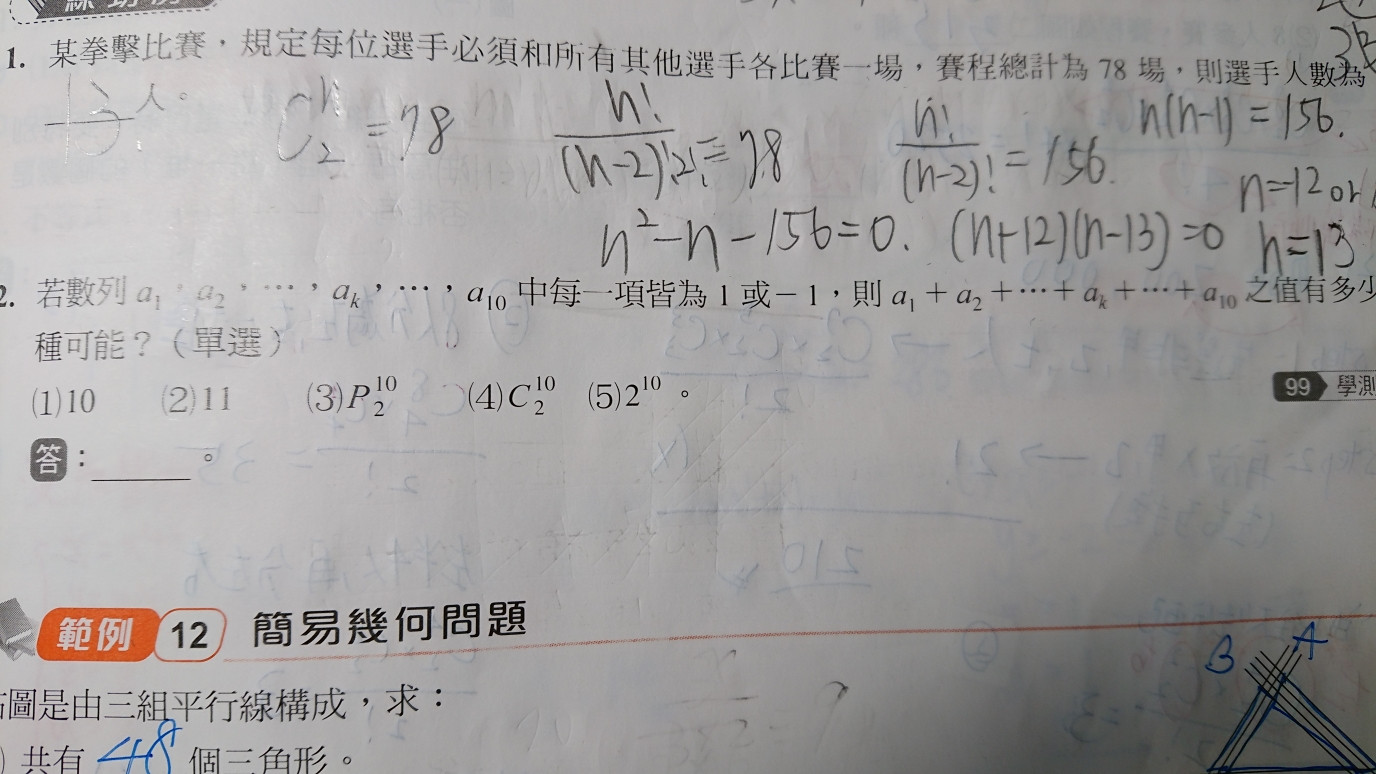 1. 某拳擊比賽，規定每位選手必須和所有其他選手各比賽一場，賽程總計為 78 場，則選手人數為
13 人。 C n 2 = 78 n!/(n-2)!2! = 78 n!/(n-2)! = 156. n(n-1) = 156.
n=-12 or
n²-n-156=0. (n+12)(n-13)=0 n=13
2. 若數列 a₁，a₂，…，aₖ，…，a₁₀ 中每一項皆為 1 或 −1，則 a₁ + a₂ + … + aₖ + … + a₁₀ 之值有多少
種可能？（單選）
(1)10 (2)11 (3)P₂¹⁰ (4)C₂¹⁰ (5)2¹⁰。
99 學測
答：______。
範例 12 簡易幾何問題
B A
右圖是由三組平行線構成，求：
共有 48 個三角形。